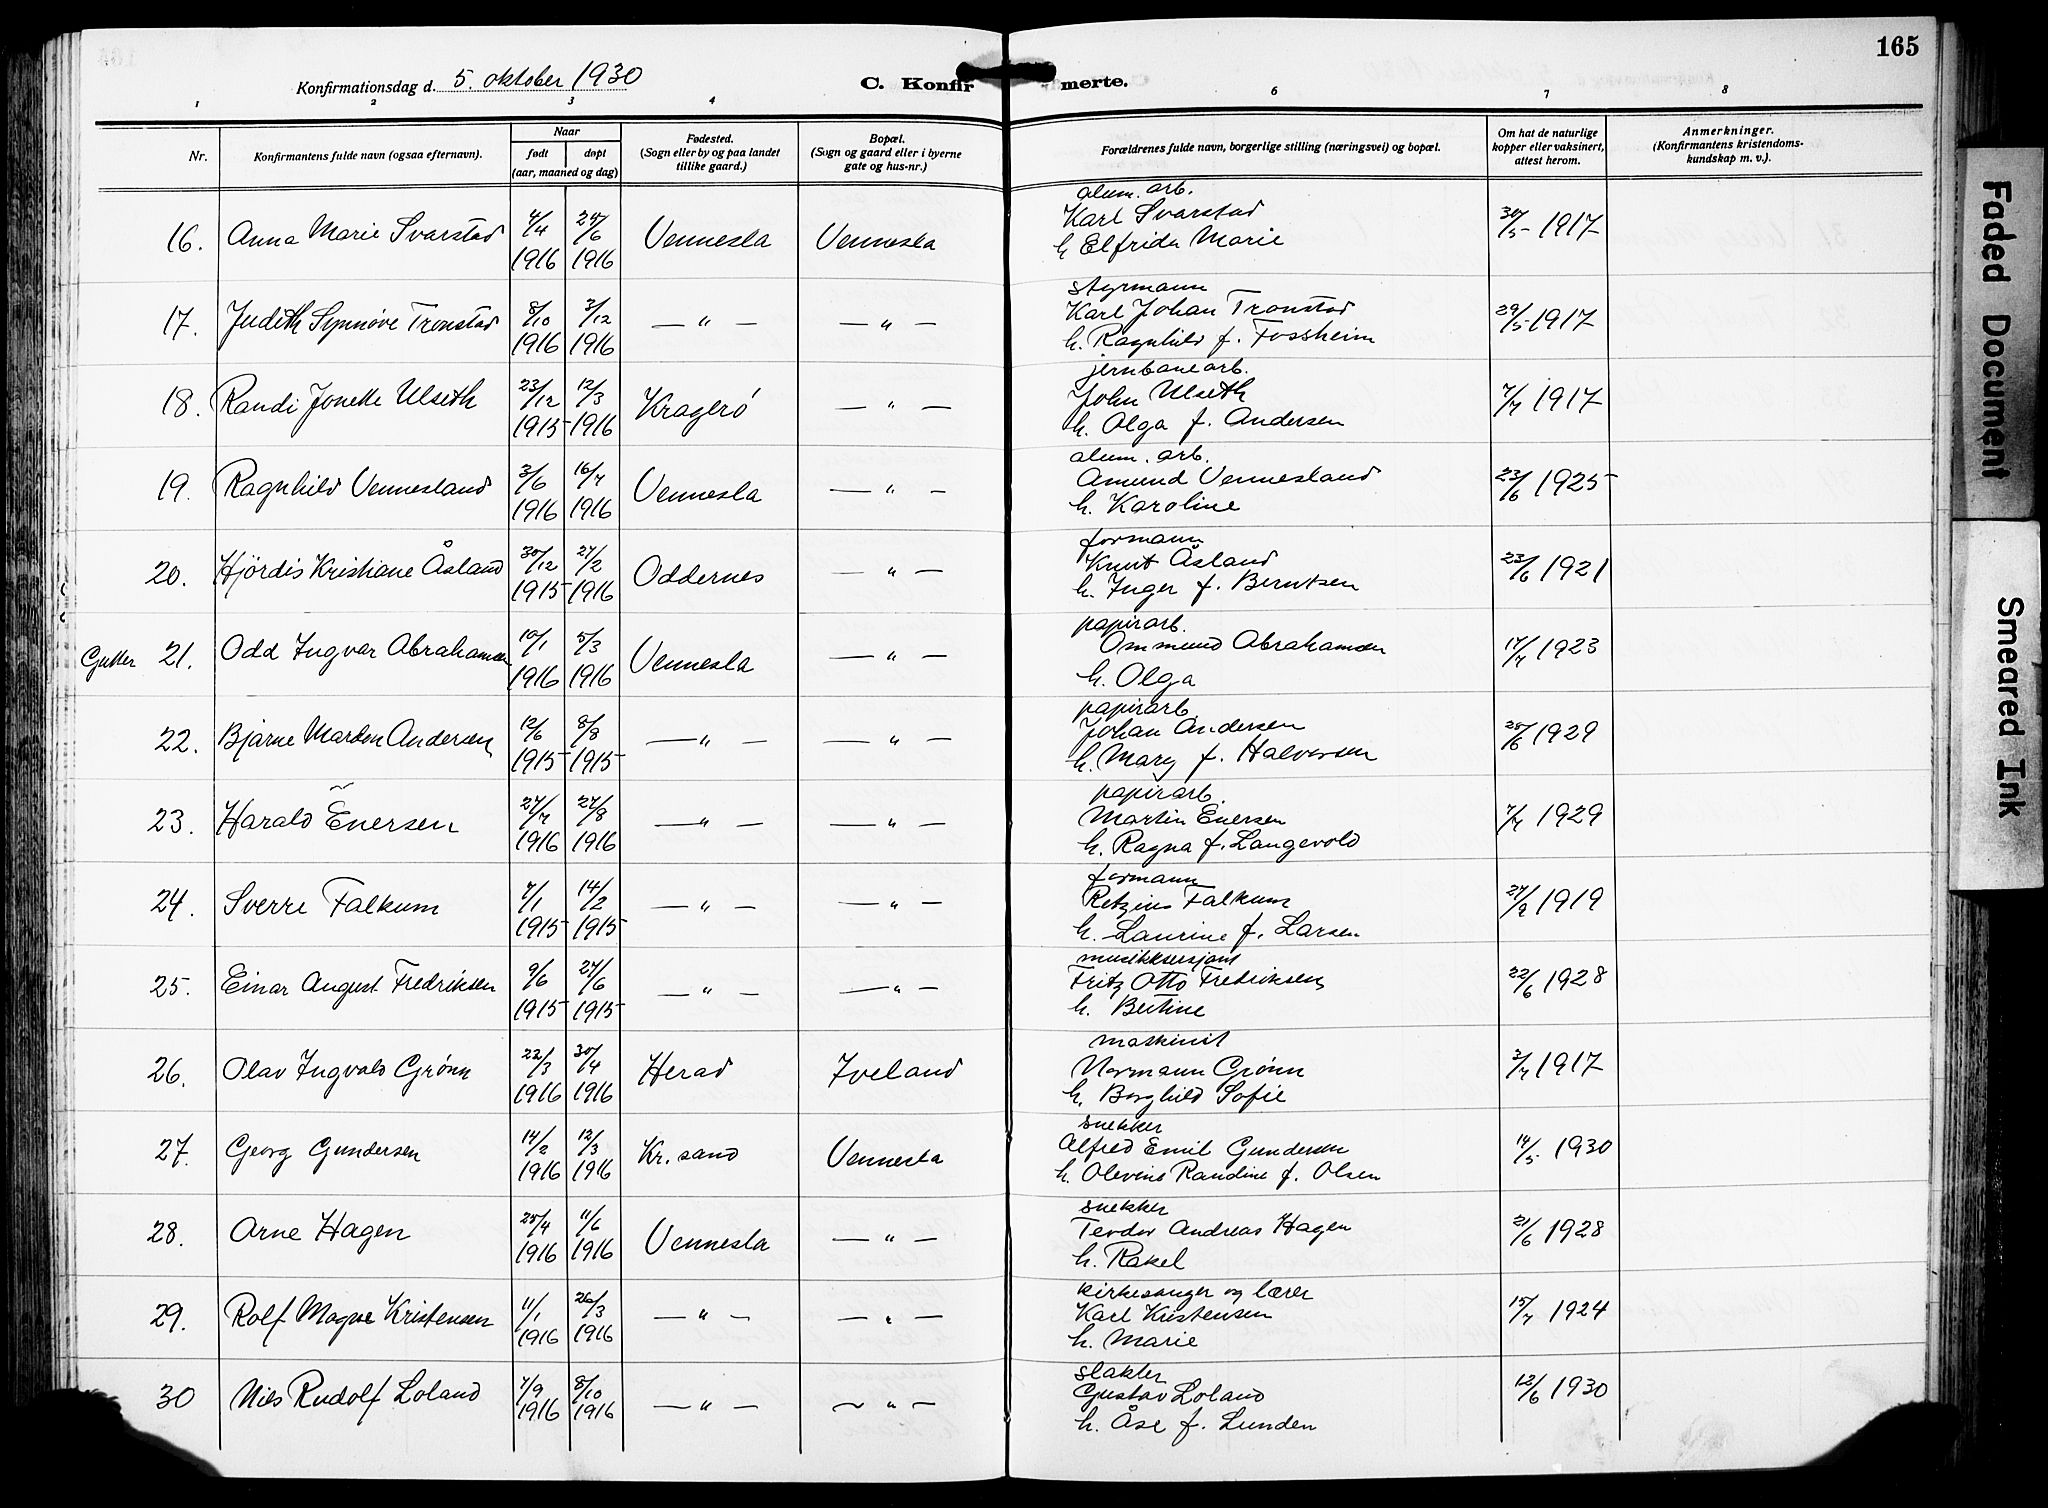 165
Konfirmationsdag d. 5. oktober 1930
C. Konfirmerte.
1 2 3 4 6 7 8
Nr.
Konfirmantens fulde navn (ogsaa efternavn).
Naar
født døpt
(aar, maaned og dag)
Fødested.
(Sogn eller by og paa landet
tillike gaard.)
Bopæl.
(Sogn og gaard eller i byerne
gate og hus-nr.)
Forældrenes fulde navn, borgerlige stilling (næringsvei) og bopæl.
Om hat de naturlige
kopper eller vaksinert,
attest herom.
Anmerkninger.
(Konfirmantens kristendoms-
kundskap m. v.).
alum. arb.
16. Anna Marie Svarstad 4/4 1916 24/6 1916 Vennesla Vennesla Karl Svarstad 30/5 - 1917
h. Elfrida Marie
styrmann
17. Judith Synnøve Tronstad 8/10 1916 3/12 1916 — " — — " — Karl Johan Tronstad 29/5 - 1917
h. Ragnhild f. Fossheim
jernbanearb.
18. Randi Jonette Ulseth 23/12 1915 12/3 1916 Kragerö — " — John Ulseth 7/7 1917
h. Olga f. Andersen
alum. arb.
19. Ragnhild Vennesland 3/6 1916 16/7 1916 Vennesla — " — Amund Vennesland 23/6 1925
h. Karoline
formann
20. Hjördis Kristiane Åsland 30/12 1915 27/2 1916 Oddernes — " — Knut Åsland 23/6 1921
h. Inger f. Berntsen
papirarb.
Gutter 21. Odd Ingvar Abrahamsen 10/1 1916 5/3 1916 Vennesla — " — Ommund Abrahamsen 17/7 1923
h. Olga
papirarb
22. Bjarne Mardon Andersen 12/6 1915 8/8 1915 — " — — " — Johan Andersen 25/6 1929
h. Mary f. Halvorsen
papirarb.
23. Harald Enersen 27/7 1916 27/8 1916 — " — — " — Martin Enersen 7/7 1929
h. Ragna f. Langevold
formann
24. Sverre Falkum 7/1 1915 14/2 1915 — " — — " — Retzius Falkum 27/9 1919
h. Laurine f. Larsen
musikksersjant
25. Einar August Fredriksen 9/6 1915 27/6 1915 — " — — " — Fritz Otto Fredriksen 22/6 1928
h. Bertine
maskinist
26. Olav Ingvald Grönn 22/3 1916 30/4 1916 Herad Iveland Normann Grönn 3/7 1917
h. Borghild Sofie
snekker
27. Georg Gundersen 14/2 1916 12/3 1916 Kr.sand Vennesla Alfred Emil Gundersen 14/5 1930
h. Olevine Randine f. Olsen
snekker
28. Arne Hagen 25/4 1916 11/6 1916 Vennesla — " — Teodor Andreas Hagen 21/6 1928
h. Rakel
kirkesanger og lærer
29. Rolf Magne Kristensen 11/1 1916 26/3 1916 — " — — " — Karl Kristensen 15/7 1924
h. Marie
slakter
30 Nils Rudolf Loland 7/9 1916 8/10 1916 — " — — " — Gustav Loland 12/6 1930
h. Åse f. Lunden
Faded Document
Smeared Ink